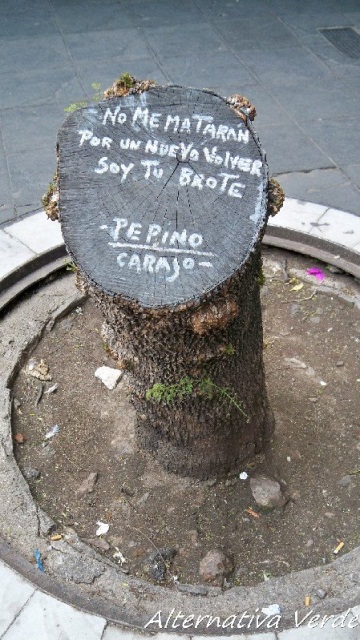 No ME MATARAN
POR UN NUEVO VOLVER
SOY TU BROTE
-PEPINO
CARAJO-
Alternativa Verde